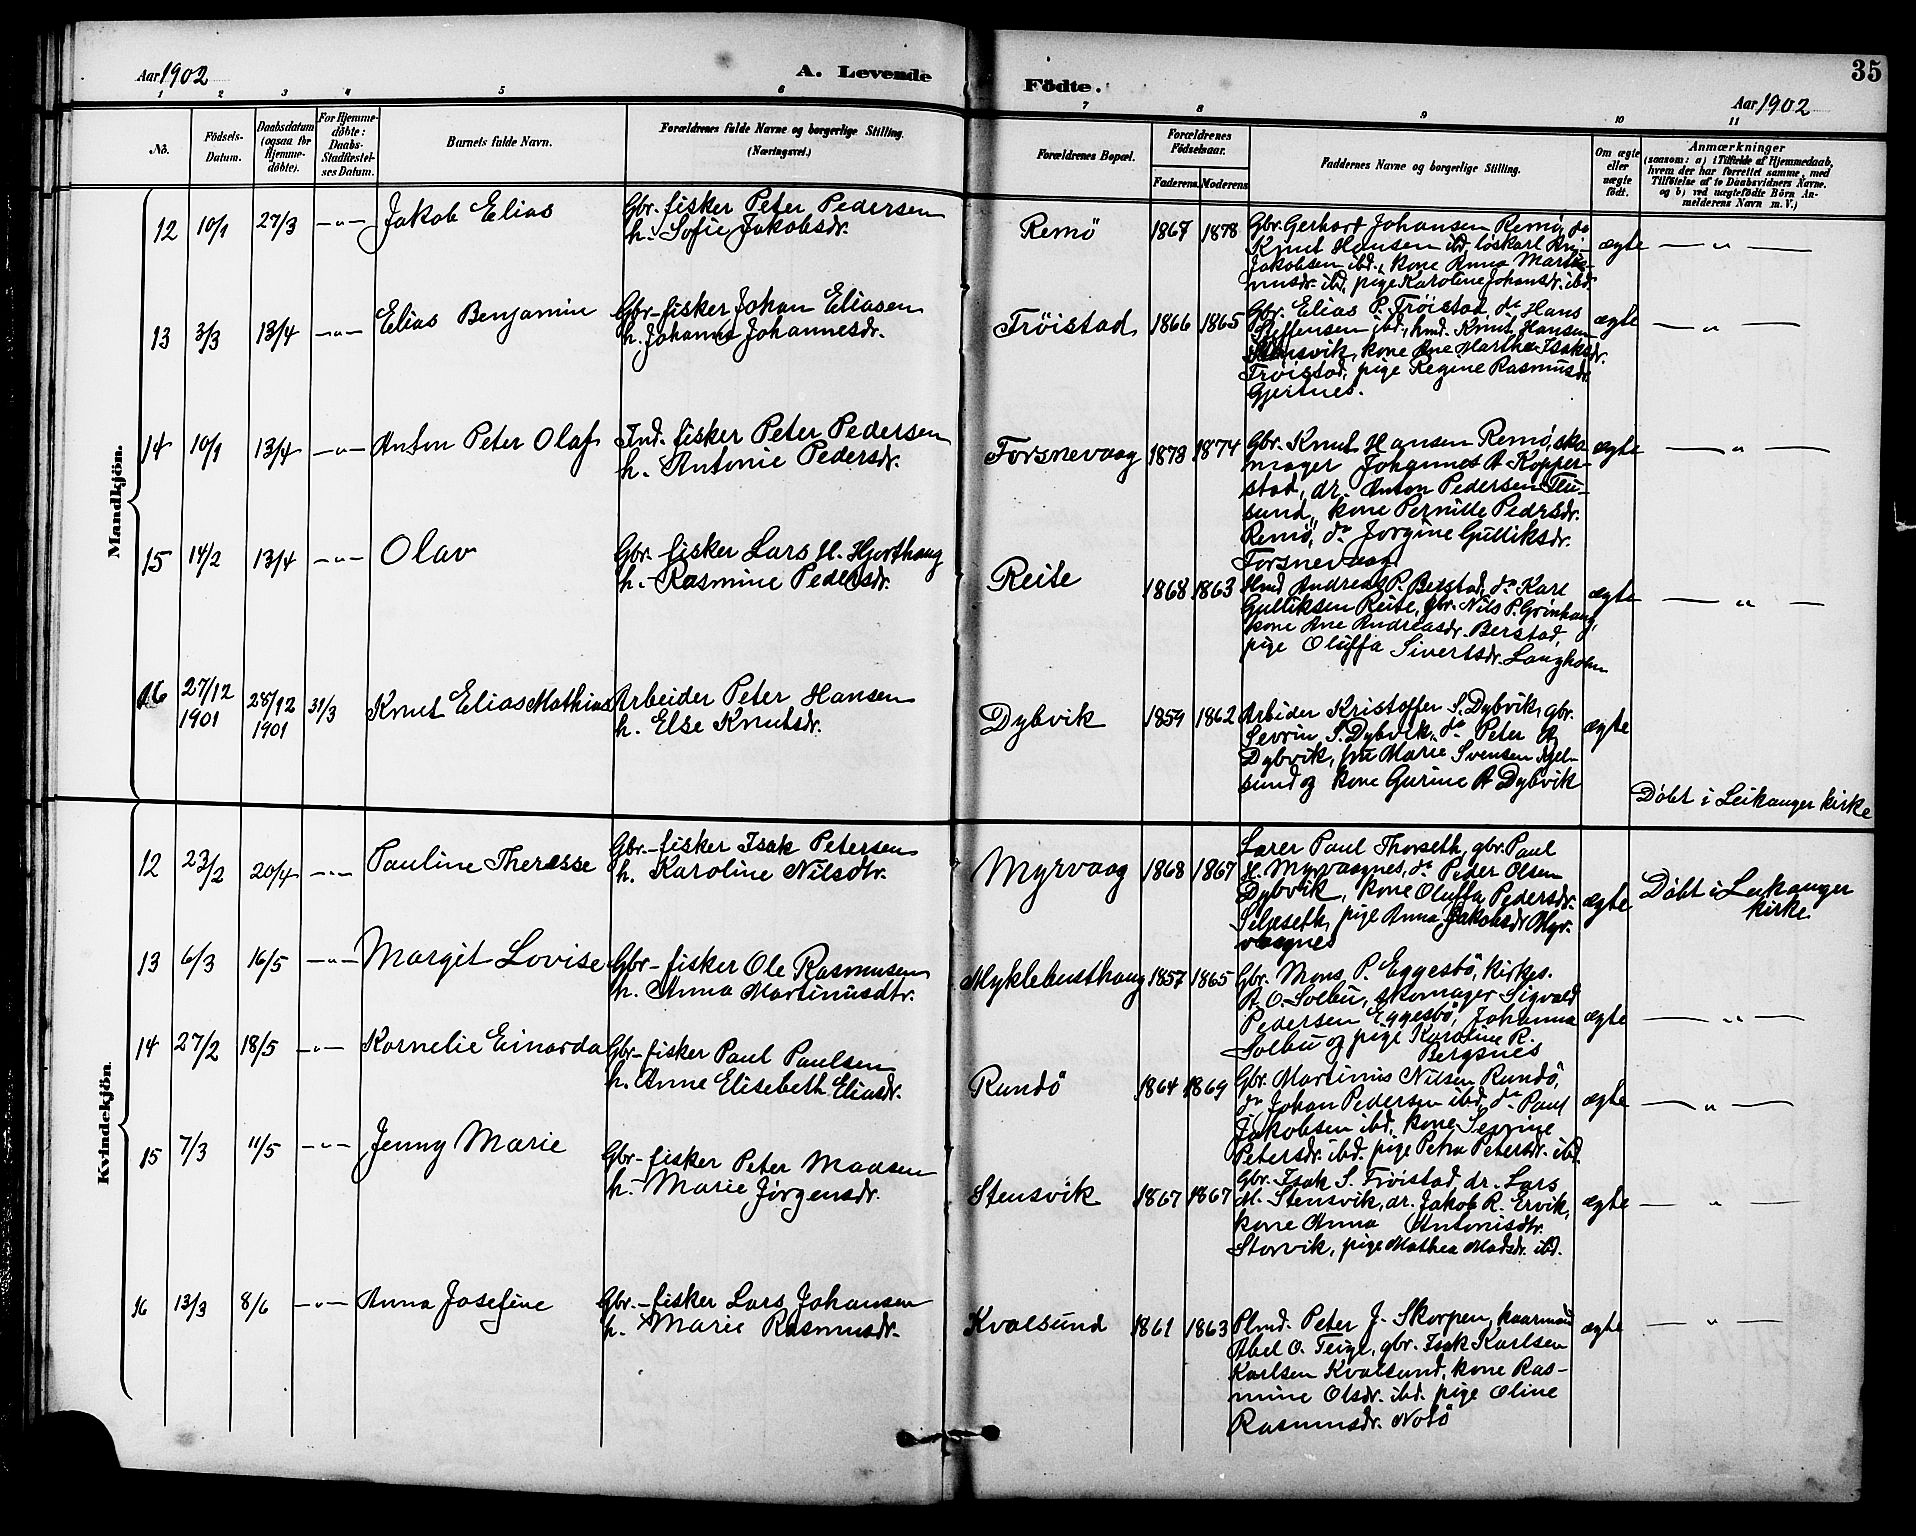 Aar 1902
A. Levende
Födte.
35
Aar 1902
1 2 3 4 5 6 7 8 9 10 11
No.
Födsels-
Datum.
Daabsdatum
(ogsaa for
Hjemme-
döbte).
For Hjemme-
döbte:
Daabs-
Stadfæstel-
ses Datum.
Barnets fulde Navn.
Forældrenes fulde Navne og borgerlige Stilling.
(Næringsvei.)
Forældrenes Bopæl.
Forældrenes
Födselsaar.
Faderens. Moderens
Faddernes Navne og borgerlige Stilling.
Om ægte
eller
uægte
födt.
Anmærkninger
(saasom: a) i Tilfælde af Hjemmedaab,
hvem der har forrettet samme, med
Tilföielse af to Daabsvidners Navne.
og b) ved uægtefödte Börn An-
melderens Navn m. V.)
Mandkjön.
12 10/1 27/3 —"— Jakob Elias
Gbr. fisker Peter Pedersen
h. Sofie Jakobsdr.
Remö 1867 1878
Gbr. Gerhard Johansen Remö, do
Knut Hansen ibd. löskarl
Jakobsen ibd., kone Anna Marti-
nusdr. ibd, pige Karoline Johansdr. ibd.
ægte — " —
13 3/3 13/4 —"— Elias Benjamin
Gbr.-fisker Johan Eliasen
h. Johanna Johannesdr.
Tröistad 1866 1865
Gbr. Elias P. Tröistad, do Hans
Steffensen ibd., hmd. Knut Hansen
Stensvik, kone Ane Martha Isaksdr.
Tröistad, pige Regine Rasmusdr.
Gjertnes.
ægte — " —
14 10/1 13/4 —"— Anton Peter Olaf
Ind. fisker Peter Pedersen
h. Antonie Pedersdr.
Forsnevaag 1873 1874
Gbr. Knut Hansen Remö, sko-
mager Johannes A. Kopper-
stad, dr. Anton Pedersen Flu-
sund, kone Pernille Pedrsdr.
Remö, do Jorgine Gulliksdr.
Forsnevaag
ægte — " —
15 14/2 13/4 —"— Olav
Gbr.-fisker Lars H. Hjorthaug
h. Rasmine Pedersdr.
Reite 1868 1863
Hmd Andreas P. Berstad, do Karl
Gulliksen Reite, gbr. Nils P. Grönhaug,
kone Ane Andreasdr. Berstad,
pige Oluffa Sivertsdr. Langholm
ægte — " —
16 27/12 1901 28/12 1901 31/3 Knut Elias Mathias
Arbeider Peter Hansen
h. Else Knutsdr.
Dybvik 1859 1862
Arbider Kristoffer S. Dybvik, gbr.
Sevrin S. Dybvik, do Peter A
Dybvik, fru Marie Svensen Kjel-
sund og kone Gurine A Dybvik
ægte
Döbt i Leikanger kirke
Kvindekjön.
12 23/2 20/4 —"— Pauline Theresse
Gbr.-fisker Isak Petersen
h. Karoline Nilsdtr.
Myrvaag 1868 1867
Lærer Paul Thorseth, gbr. Paul
H. Myrvaagnes, do Peder Olsen
Dybvik, kone Oluffa Pedersdr.
Seljeseth, pige Anna Jakobsdr. Myr-
vaagnes
ægte
Döbt i Leikanger
kirke
13 6/3 16/5 —"— Margit Lovise
Gbr-fisker Ole Rasmusen
h. Anna Martinusdtr.
Myklebusthaug 1857 1865
Gbr. Mons P. Eggesbö, kirkes.
A. O. Solbu, skomager Sigvald
Pedersen Eggesbö, Johanna
Solbu og pige Karoline R.
Bergsnes
ægte — " —
14 27/2 18/5 —"— Kornelie Einarda
Gbr-fisker Paul Paulsen
h. Anne Elisebeth Eliasdr.
Rundö 1864 1869
Gbr. Martinus Nilsen Rundö,
do Johan Pedersen ibd, do Paul
Jakobsen ibd, kone Sevrine
Petersdr. ibd. pige Petra Petersdr. ibd.
ægte — " —
15 7/3 11/5 —"— Jenny Marie
Gbr-fisker Peter Madsen
h. Marie Jörgensdr.
Stensvik 1867 1867
Gbr. Isak S. Tröistad, dr. Lars
M. Stensvik, dr. Jakob R. Ervik,
kone Anna Antonisdtr.
Storvik, pige Mathea Madsdr. ibd.
ægte — " —
16 13/3 8/6 —"— Anna Josefine
Gbr.-fisker Lars Johansen
h. Marie Rasmusdr.
Kvalsund 1861 1863
Plmd. Peter J. Skorpen, kaarmand
Abel O. Teige, gbr. Isak Karlsen
Karlsen Kvalsund, kone Ras-
mine Olsdr. ibd. pige Oline
Rasmusdr. Notö
ægte — " —